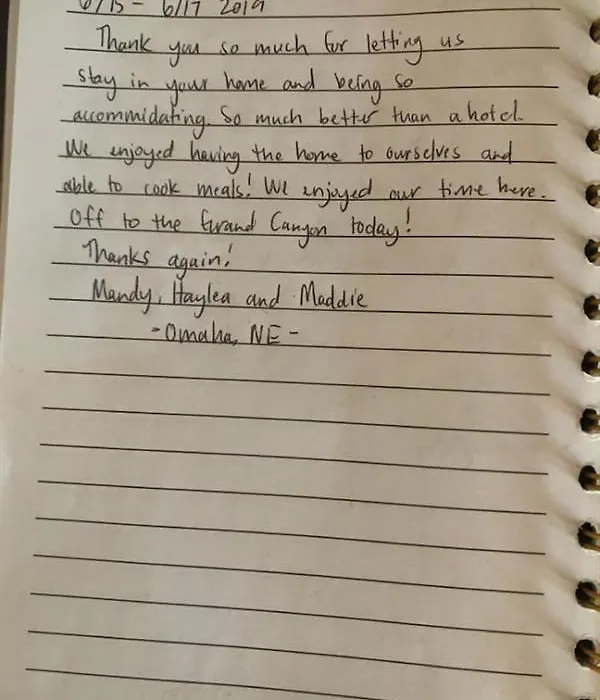 6/15 - 6/17 2019
Thank you so much for letting us
stay in your home and being so
accommidating. So much better than a hotel.
We enjoyed having the home to ourselves and
able to cook meals! We enjoyed our time here.
Off to the Grand Canyon today!
Thanks again!
Mandy, Haylea and Maddie
-Omaha, NE-